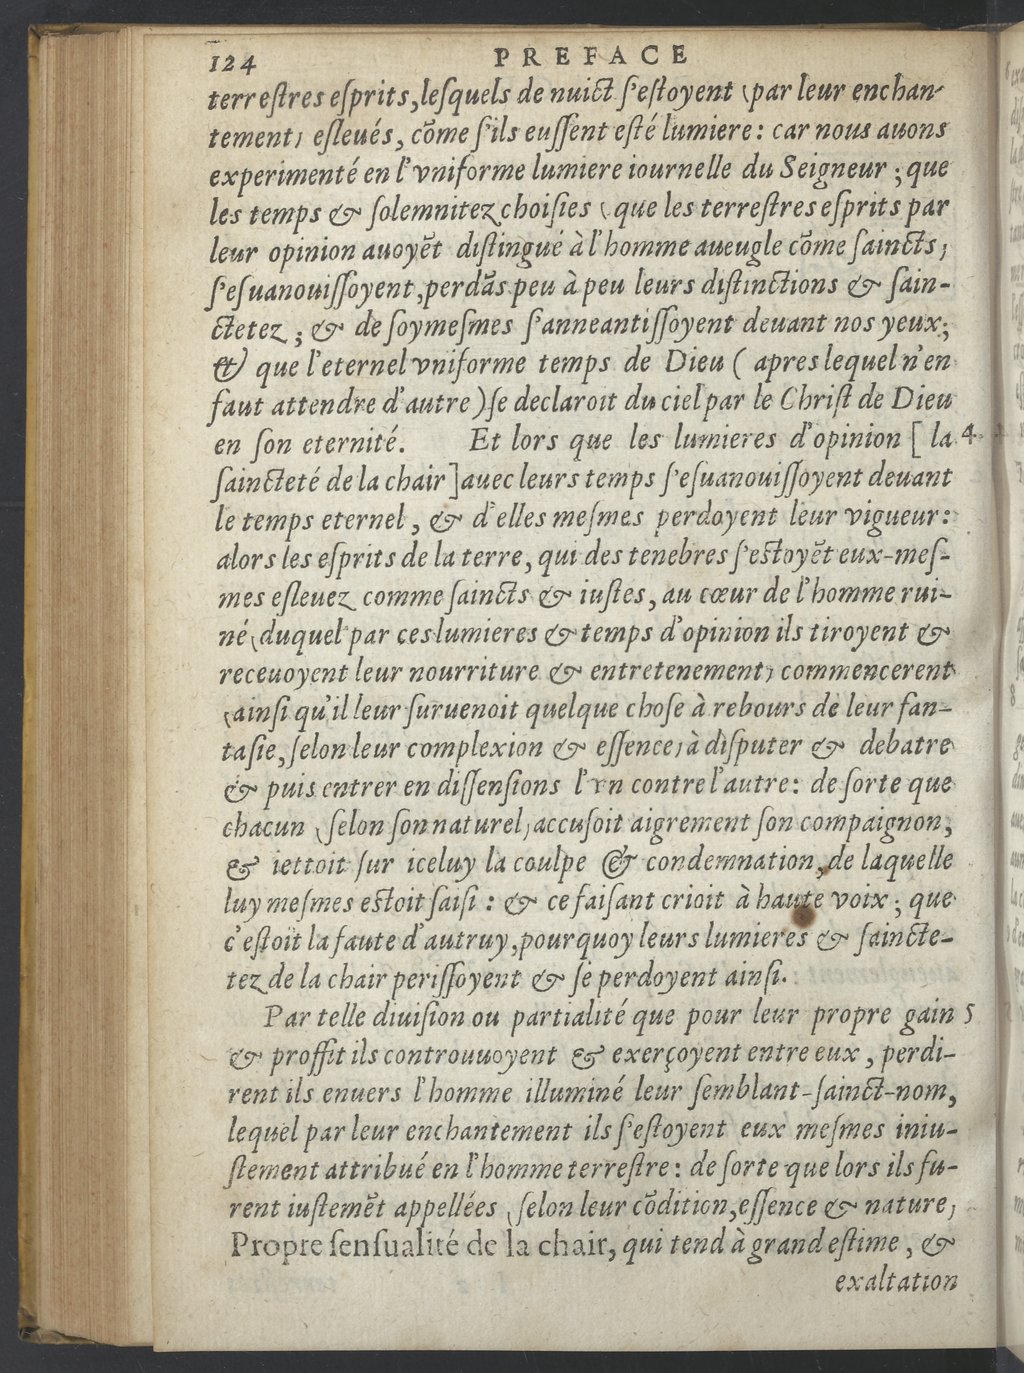 124 PREFACE
terreſtres eſprits, leſquels de nuict ſ'eſtoyent (par leur enchan-
tement) eſleués, cõme ſ'ils euſſent eſté lumiere: car nous auons
experimenté en l'vniforme lumiere iournelle du Seigneur; que
les temps & ſolemnitez choiſies (que les terreſtres eſprits par
leur opinion auoyẽt diſtingué à l'homme aueugle cõme ſaincts)
ſ'eſuanouiſſoyent, perdãs peu à peu leurs diſtinctions & ſain-
ctetez; & de ſoymeſmes ſ'anneantiſſoyent deuant nos yeux;
& que l'eternel vniforme temps de Dieu (apres lequel n'en
faut attendre d'autre) ſe declaroit du ciel par le Chriſt de Dieu
en ſon eternité. Et lors que les lumieres d'opinion [la 4
ſaincteté de la chair] auec leurs temps ſ'eſuanouiſſoyent deuant
le temps eternel, & d'elles meſmes perdoyent leur vigueur:
alors les eſprits de la terre, qui des tenebres ſ'eſtoyẽt eux-meſ-
mes eſleuez comme ſaincts & iuſtes, au cœur de l'homme rui-
né (duquel par ces lumieres & temps d'opinion ils tiroyent &
receuoyent leur nourriture & entretenement) commencerent
(ainſi qu'il leur ſuruenoit quelque choſe à rebours de leur fan-
taſie, ſelon leur complexion & eſſence) à diſputer & debatre
& puis entrer en diſſenſions l'vn contre l'autre: de ſorte que
chacun (ſelon ſon naturel) accuſoit aigrement ſon compaignon,
& iettoit ſur iceluy la coulpe & condemnation, de laquelle
luy meſmes eſtoit ſaiſi: & ce faiſant crioit à haute voix; que
c'eſtoit la faute d'autruy, pourquoy leurs lumieres & ſaincte-
tez de la chair periſſoyent & ſe perdoyent ainſi.
Par telle diuiſion ou partialité que pour leur propre gain 5
& proffit ils controuuoyent & exerçoyent entre eux, perdi-
rent ils enuers l'homme illuminé leur ſemblant-ſainct-nom,
lequel par leur enchantement ils ſ'eſtoyent eux meſmes iniu-
ſtement attribué en l'homme terreſtre: de ſorte que lors ils fu-
rent iuſtemẽt appellées (ſelon leur cõdition, eſſence & nature)
Propre ſenſualité de la chair, qui tend à grand eſtime, &
exaltation